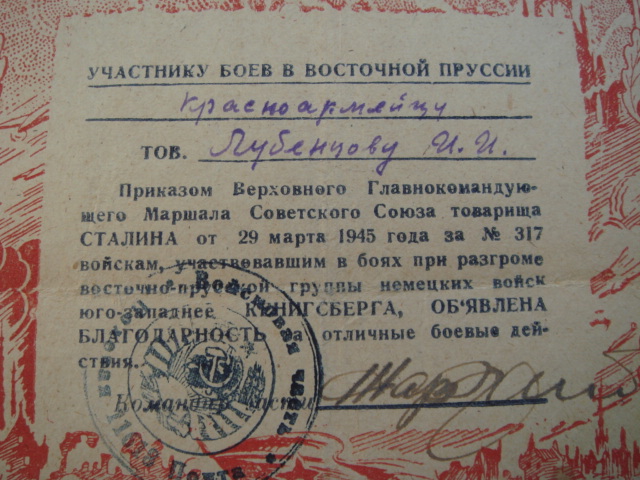 УЧАСТНИКУ БОЕВ В ВОСТОЧНОЙ ПРУССИИ
Красноармейцу
ТОВ. Лубенцову И. И.
Приказом Верховного Главнокомандую-
щего Маршала Советского Союза товарища
СТАЛИНА от 29 марта 1945 года за № 317
войскам, участвовавшим в боях при разгроме
восточно-прусской группы немецких войск
юго-западнее КЕНИГСБЕРГА, ОБ'ЯВЛЕНА
БЛАГОДАРНОСТЬ за отличные боевые дей-
ствия.
Командир части
Войсковая часть
Полевая Почта